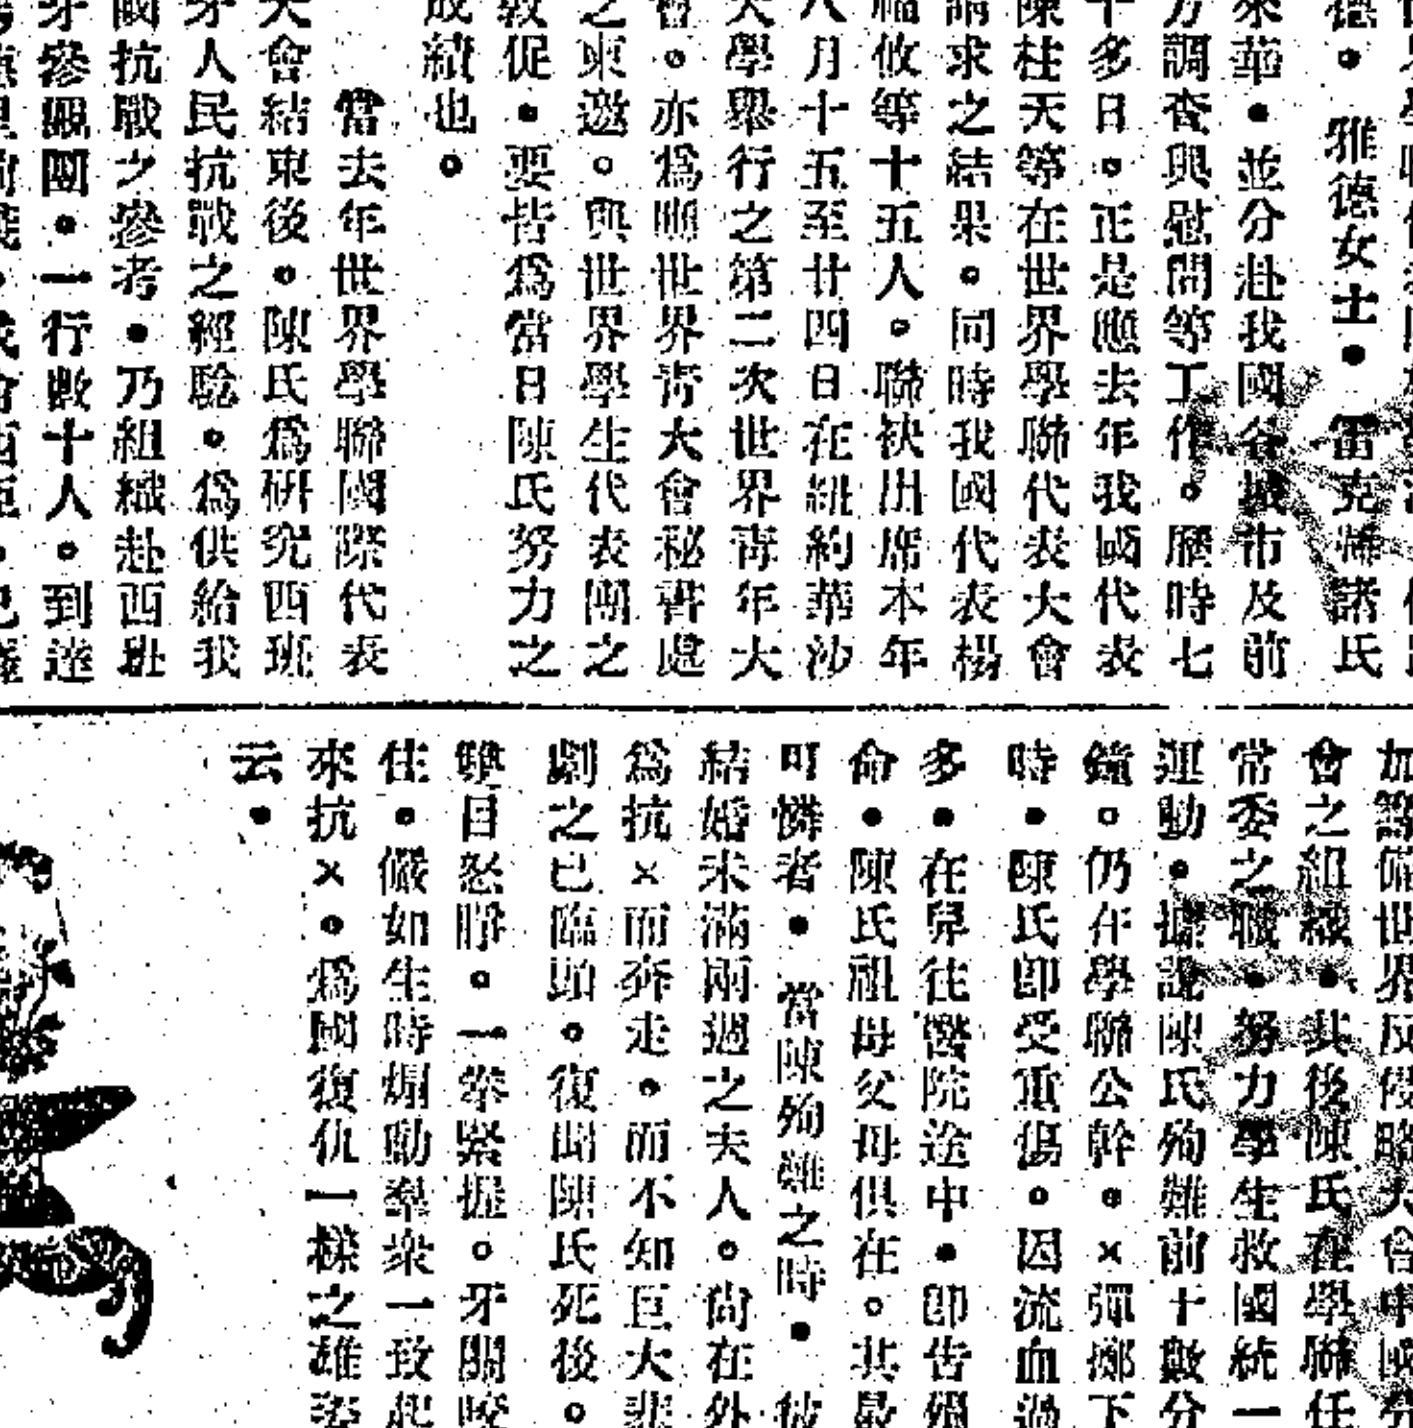 德。 雅德女士。 雷克難諾氏
來華。並分赴我國各城市及前
方調查與慰問等工作。歷時七
十多日。正是應去年我國代表
陳柱天等在世界學聯代表大會
請求之結果。同時我國代表楊
福攸等十五人。聯袂出席本年
八月十五至廿四日在紐約華沙
大學舉行之第二次世界青年大
會。亦為世界青大會秘書處
之東邀。與世界學生代表團之
敦促。要皆爲當日陳氏努力之
成績也。
當去年世界學聯國際代表
大會結束後。陳氏爲研究西班
牙人民抗戰之經驗。爲供給我
國抗戰之參考。乃組織赴西班
牙參觀團。一行數十人。到達
加籌備世界反侵略大會中國分
會之組織。其後陳氏在學聯任
常委之職。努力學生救國統一
運動。據說陳氏殉難前十數分
鐘。仍在學聯公幹。×彈擲下
時。陳氏卽受重傷。因流血過
多。在舁往醫院途中。卽告殞
命。陳氏祖母父母俱在。其最
可憐者。當陳殉難之時。彼
結婚未滿兩週之夫人。尚在外
爲抗×而奔走。而不知巨大悲
劇之已臨頭。復聞陳氏死後。
雙目怒睜。一拳緊握。牙關咬
住。儼如生時煽動羣衆一致起
來抗×。爲國復仇一樣之雄姿
云。